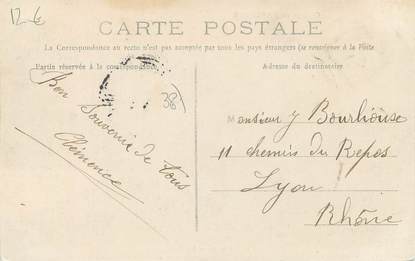 12-6
CARTE POSTALE
La Correspondance au recto n'est pas acceptée par tous les pays étrangers (se renseigner à la Poste
Partin réservée à la correspondance
Adresse du destinataire
38
Bon
Souvenir de tous
Clémence
Monsieur J Bourliouse
11 chemin du Repos
Lyon
Rhône